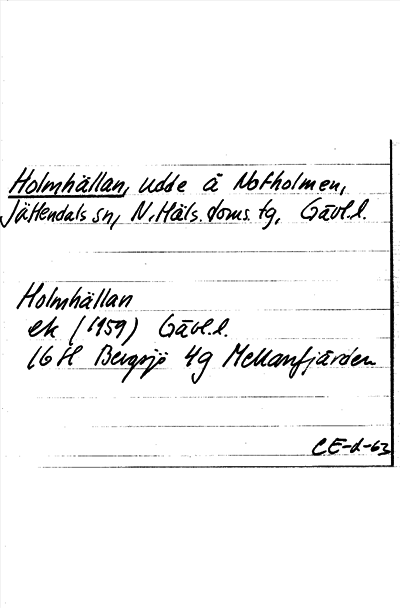 Holmhällan, udde å Notholmen,
Jättendals sn, N. Häls. doms. tg, Gävl.l.
Holmhällan
ek (1959) Gävl.l.
16 H Bergsjö 4g Mellanfjärden
CE-d-63